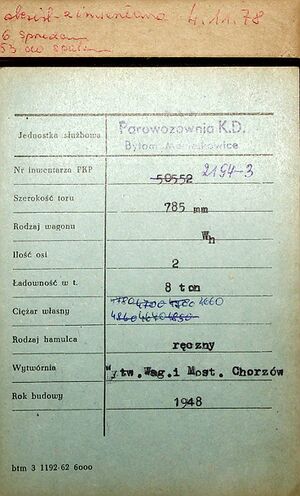 4.11.78
6 sprzedan
53 do spalen
Jednostka służbowa Parowozownia K.D.
Bytom
Nr inwentarza PKP 50552 2194-3
Szerokość toru 785 mm
Rodzaj wagonu Wh
Ilość osi 2
Ładowność w t. 8 ton
Ciężar własny 4700 4660
Rodzaj hamulca ręczny
Wytwórnia Wytw.Wag.i Most. Chorzów
Rok budowy 1948
btm 3 1192-62 6000